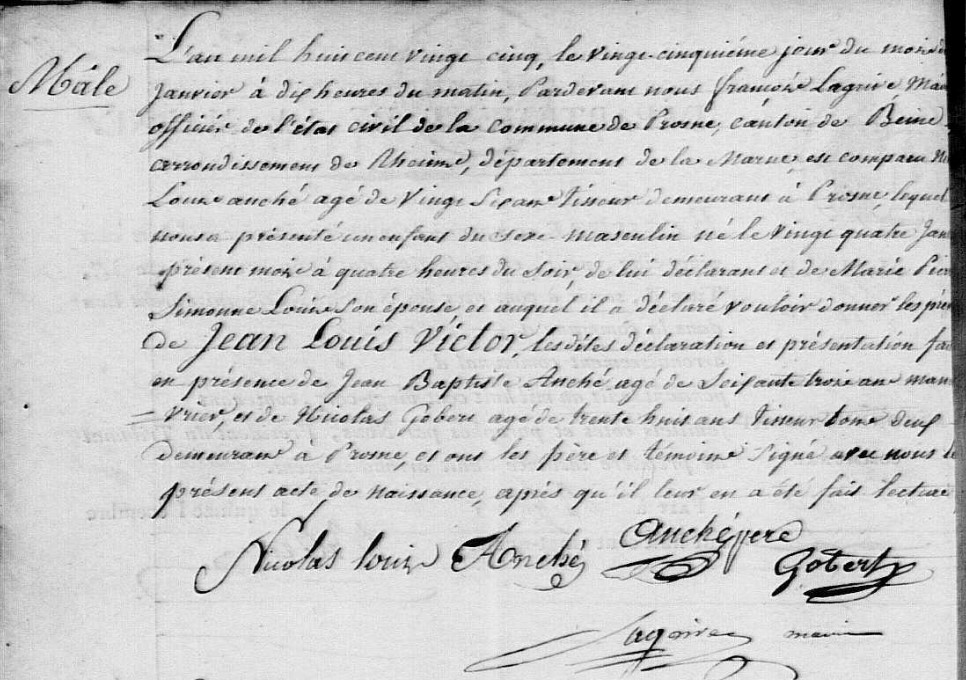 Mâle
L'an mil huit cent vingt cinq, le vingt-cinquiéme jour du mois de
Janvier à dix heures du matin, Pardevant nous françois Lagrive Mai
officier de l'état civil de la commune de Prosne, canton de Beine
arrondissement de Rheims, département de la Marne, est comparu Ni
Louis anché agé de Vingt Six ans Tisseur demeurant à Prosne, lequel
nous a présenté un enfant du sexe masculin né le vingt quatre Janv
présent mois à quatre heures du soir, de lui déclarant et de Marie Pier
Simonne Louis son épouse et auquel il a déclaré vouloir donner les prén
de Jean Louis Victor, les dites déclaration et présentation fai
en présence de Jean Baptiste Anché agé de Soixante trois ans man
= uvrier, et de Nicolas Gobert agé de trente huit ans Tisseur tous deux
demeurant à Prosne, et ont les père et témoins Signé avec nous le
présent acte de naissance, après qu'il leur en a été fait lecture
Nicolas louis Anché anché pere Gobert
Lagrive maire